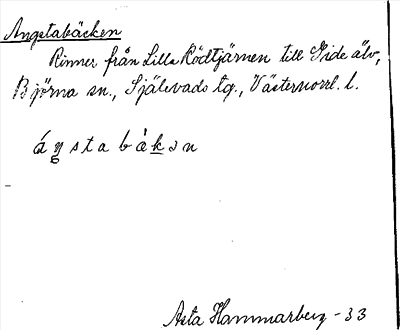 Angstabäcken
Rinner från Lilla Rödtjärnen till Gide älv,
Björna sn., Själevads tg., Västernorrl. l.
áŋstabàkən
Asta Hammarberg -33